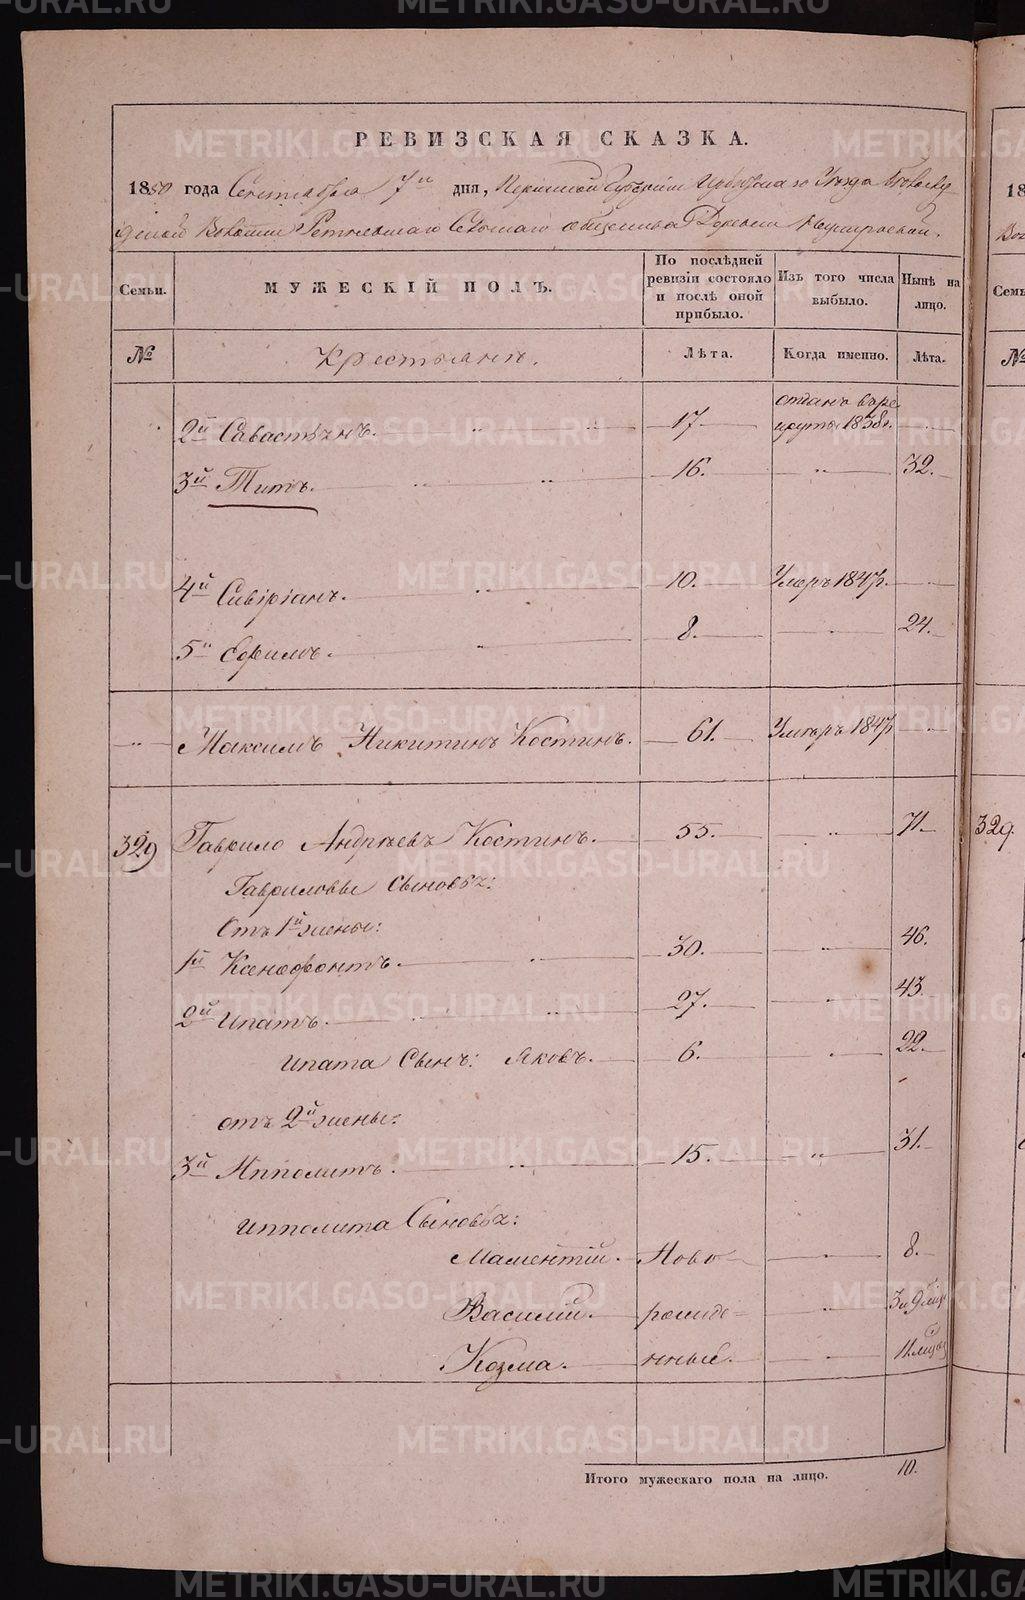 METRIKI.GASO-URAL.RU
РЕВИЗСКАЯ СКАЗКА.
1850 года Сентября 7го дня, Пермской Губернии Уезда
Волости Сельского общества Деревни
Семьи. МУЖЕСКІЙ ПОЛЪ. По послѣдней ревизіи состояло и послѣ оной прибыло. Изъ того числа выбыло. Нынѣ на лицо.
№ Крестьяне. Лѣта. Когда именно. Лѣта.
отданъ въ ре
2й Савастьянъ. 17 круты 1838г.
3й Титъ. 16. 32.
4й Сивіріанъ. 10. Умеръ 1847г.
5й Ефимъ. 8. 24.
Максимъ Никитинъ Костинъ. 61. Умеръ 1847г
329 Гаврило Андреевъ Костинъ. 55. 71 329.
Гавриловы Сыновья:
Отъ 1й жены:
1й Ксенофонтъ. 30. 46.
2й Ипатъ. 27. 43.
Ипата Сынъ: Яковъ. 6. 22.
отъ 2й жены:
3й Ипполитъ. 15. 31.
Ипполита Сыновья:
Маментій. Ново 8.
Василій. рожде= 3 и 9 мѣс
Козма. нные. 11 мѣсяц
Итого мужескаго пола на лицо. 10.